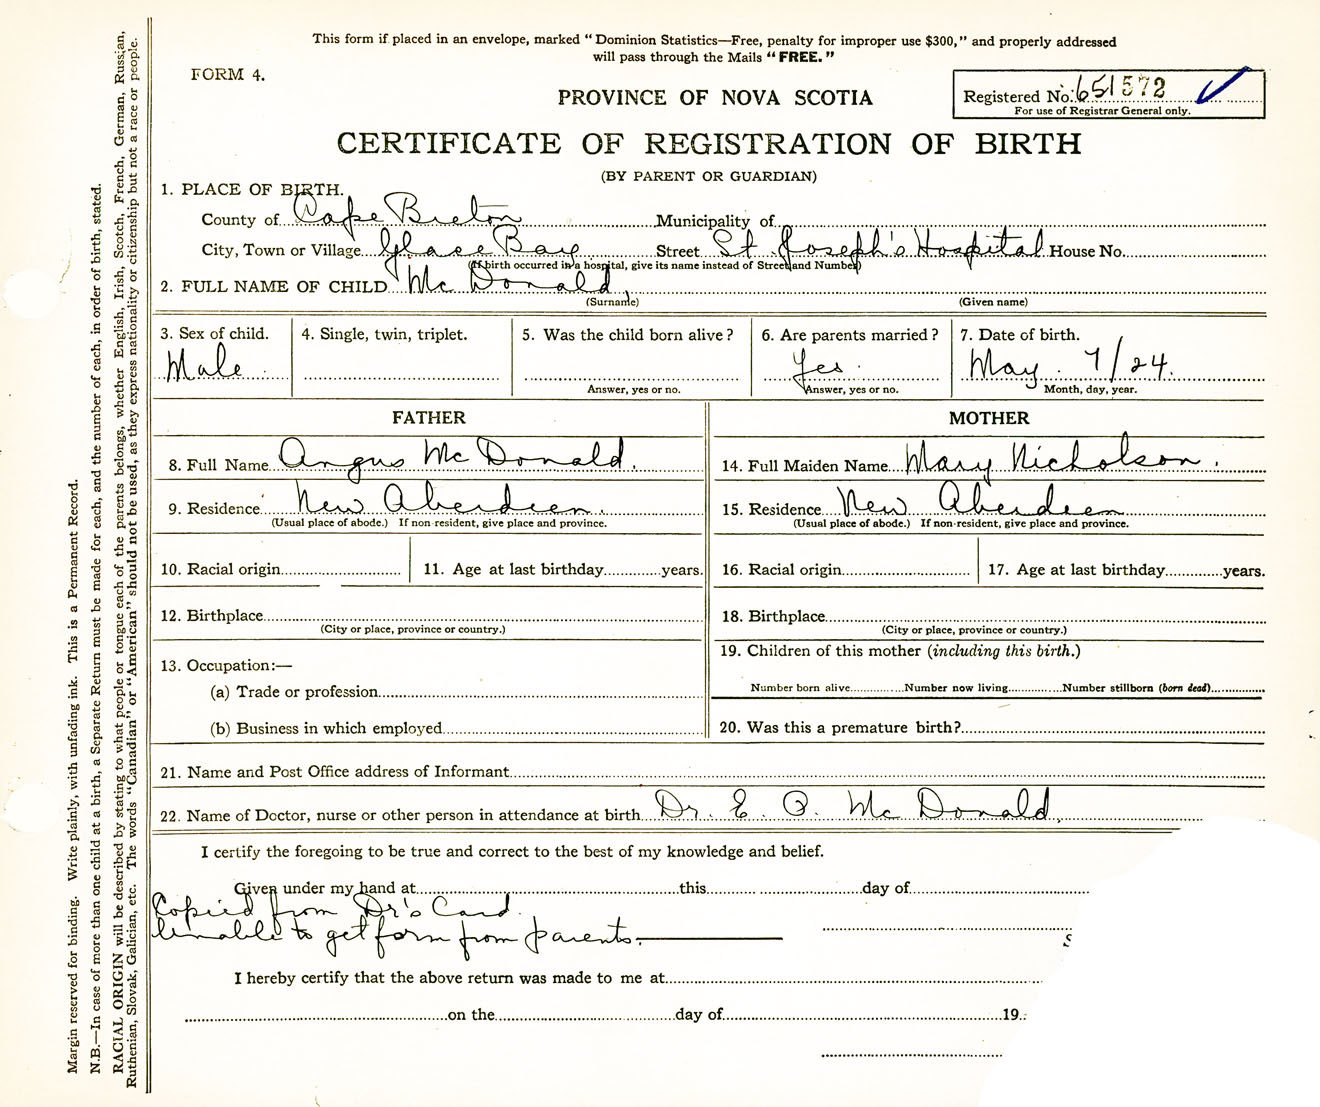 This form if placed in an envelope, marked "Dominion Statistics—Free, penalty for improper use $300," and properly addressed
will pass through the Mails "FREE."
FORM 4.
Registered No. 651572
For use of Registrar General only.
PROVINCE OF NOVA SCOTIA
CERTIFICATE OF REGISTRATION OF BIRTH
(BY PARENT OR GUARDIAN)
1. PLACE OF BIRTH.
County of Cape Breton Municipality of
City, Town or Village Glace Bay Street St Joseph's Hospital House No.
(If birth occurred in a hospital, give its name instead of Street and Number)
2. FULL NAME OF CHILD Mc Donald,
(Surname) (Given name)
3. Sex of child. 4. Single, twin, triplet. 5. Was the child born alive? 6. Are parents married? 7. Date of birth.
Male Yes May. 7/24.
Answer, yes or no. Answer, yes or no. Month, day, year.
FATHER MOTHER
8. Full Name Angus Mc Donald. 14. Full Maiden Name Mary Nicholson.
9. Residence New Aberdeen. 15. Residence New Aberdeen
(Usual place of abode.) If non-resident, give place and province. (Usual place of abode.) If non-resident, give place and province.
10. Racial origin 11. Age at last birthday years. 16. Racial origin 17. Age at last birthday years.
12. Birthplace 18. Birthplace
(City or place, province or country.) (City or place, province or country.)
13. Occupation:— 19. Children of this mother (including this birth.)
(a) Trade or profession Number born alive Number now living Number stillborn (born dead)
(b) Business in which employed 20. Was this a premature birth?
21. Name and Post Office address of Informant
22. Name of Doctor, nurse or other person in attendance at birth Dr. E. O. Mc Donald,
I certify the foregoing to be true and correct to the best of my knowledge and belief.
Given under my hand at this day of
Copied from Dr's Card.
Unable to get form from parents.
I hereby certify that the above return was made to me at
on the day of 19
Margin reserved for binding. Write plainly, with unfading ink. This is a Permanent Record.
N.B.—In case of more than one child at a birth, a Separate Return must be made for each, and the number of each, in order of birth, stated.
RACIAL ORIGIN will be described by stating to what people or tongue each of the parents belongs, whether English, Irish, Scotch, French, German, Russian,
Ruthenian, Slovak, Galician, etc. The words "Canadian" or "American" should not be used, as they express nationality or citizenship but not a race or people.